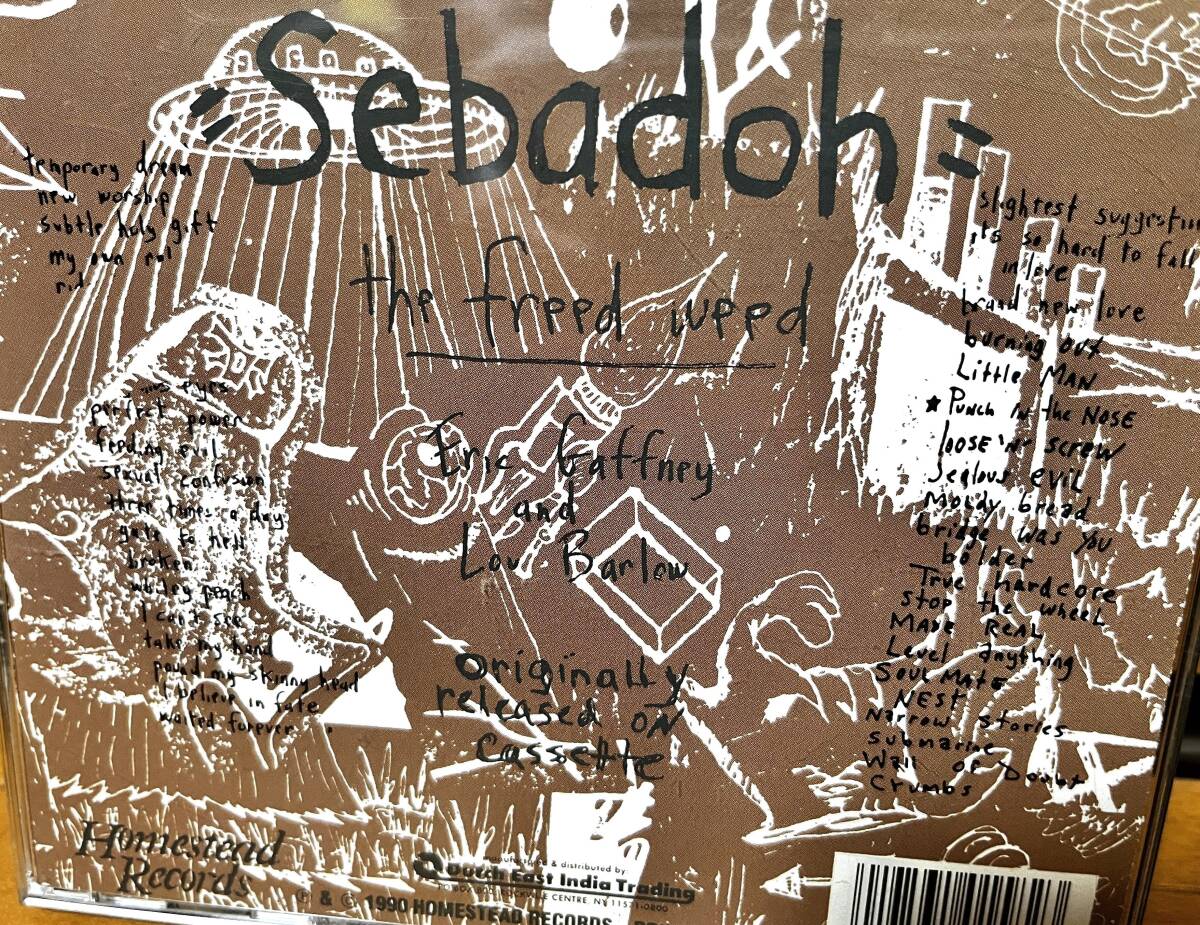 = Sebadoh =
the freed weed
Eric Gaffney
and
Lou Barlow
originally
released on
cassette
temporary dream
new worship
subtle holy gift
my own
eyes
perfect power
feeding evil
sexual confusion
three times a day
gate to hell
broken
peach
I can't see
take my hand
pound my skinny head
I believe in fate
waited forever
slightest suggestion
its so hard to fall
in love
brand new love
burning out
Little MAN
★ Punch IN the NOSE
loose 'n' screw
Jealous evil
Moldy bread
bridge was you
bolder
True hardcore
stop the wheel
Made Real
Level anything
Soul Mate
NEST
Narrow stories
submarine
Wall of Doubt
Crumbs
Homestead
Records
manufactured & distributed by:
Dutch East India Trading
ROCKVILLE CENTRE, NY 11571-0800
℗ & © 1990 HOMESTEAD RECORDS